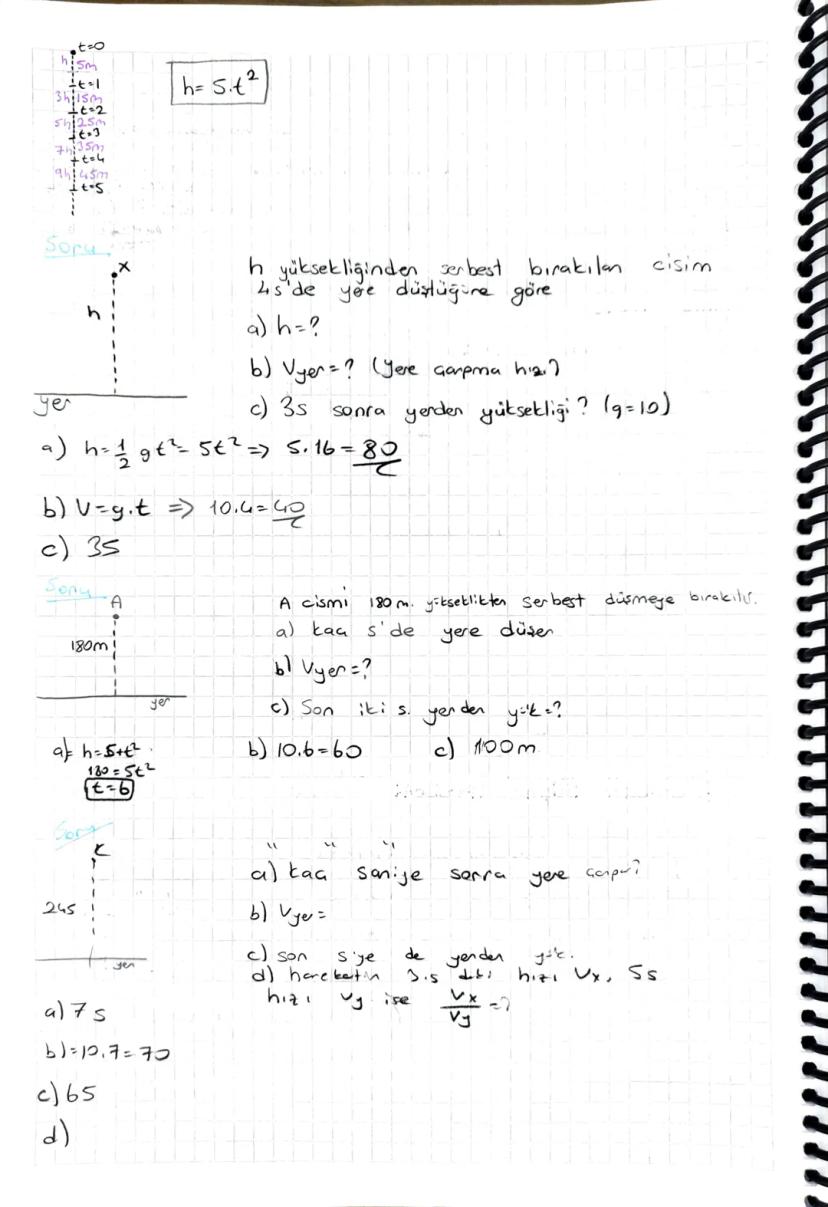 t=0
h 5m
t=1
3h 15m
t=2
5h 25m
t=3
7h 35m
t=4
9h 45m
t=5
h= 5.t²
Soru
x
h
yer
h yüksekliğinden serbest bırakılan cisim
4s'de yere düştüğüne göre
a) h=?
b) Vyer=? (Yere çarpma hızı?)
c) 3s sonra yerden yüksekliği? (g=10)
a) h=1/2 gt²= 5t² => 5.16=80
b) V=g.t => 10.4=40
c) 35
Soru
A
180m
yer
A cismi 180 m. yükseklikten serbest düşmeye bırakılır.
a) kaç s'de yere düşer
b) Vyer=?
c) Son iki s. yerden yük=?
a) h=5+t²
180=5t²
t=6
b) 10.6=60
c) 100m
Soru
K
245
yer
" " "
a) kaç saniye sonra yere çarpar?
b) Vyer=
c) son s'ye de yerden yük.
d) hareketin 3.s deki hızı Vx, 5s
hızı Vy ise Vx/Vy =?
a) 7s
b)=10.7=70
c) 65
d)